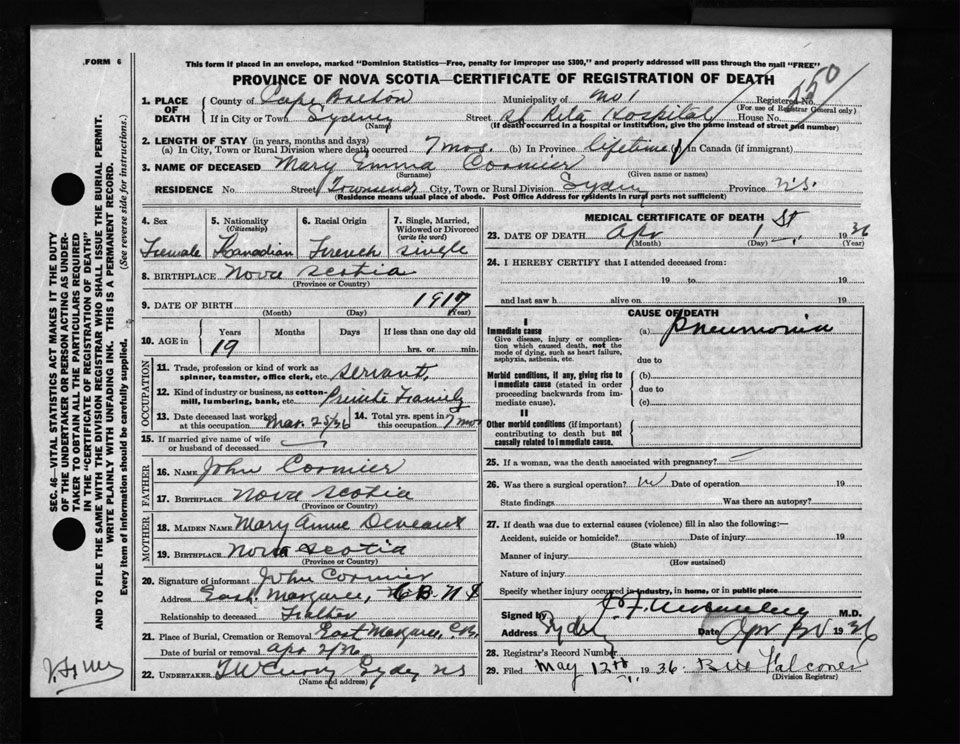 FORM 6
This form if placed in an envelope, marked "Dominion Statistics—Free, penalty for improper use $300," and properly addressed will pass through the mail "FREE"
PROVINCE OF NOVA SCOTIA—CERTIFICATE OF REGISTRATION OF DEATH
1. PLACE OF DEATH County of Cape Breton Municipality of No 1 Registered No.
(For use of Registrar General only)
If in City or Town Sydney Street St Rita Hospital House No.
(Name) (If death occurred in a hospital or institution, give the name instead of street and number)
2. LENGTH OF STAY (in years, months and days)
(a) In City, Town or Rural Division where death occurred 7 mos. (b) In Province Lifetime (c) In Canada (if immigrant)
3. NAME OF DECEASED Mary Emma Cormier
(Surname) (Given name or names)
RESIDENCE No Street Townsend City, Town or Rural Division Sydney Province N.S.
(Residence means usual place of abode. Post Office Address for residents in rural parts not sufficient)
4. Sex Female
5. Nationality (Citizenship) Canadian
6. Racial Origin French
7. Single, Married, Widowed or Divorced (write the word) Single
8. BIRTHPLACE Nova Scotia
(Province or Country)
9. DATE OF BIRTH 1917
(Month) (Day) (Year)
10. AGE in Years Months Days If less than one day old
19 hrs. or min.
OCCUPATION
11. Trade, profession or kind of work as spinner, teamster, office clerk, etc. Servant
12. Kind of industry or business, as cotton-mill, lumbering, bank, etc. Private Family
13. Date deceased last worked at this occupation Mar. 25/36
14. Total yrs. spent in this occupation 7 mos
15. If married give name of wife or husband of deceased
FATHER
16. NAME John Cormier
17. BIRTHPLACE Nova Scotia
(Province or Country)
MOTHER
18. MAIDEN NAME Mary Anne Deveaux
19. BIRTHPLACE Nova Scotia
(Province or Country)
20. Signature of informant John Cormier
Address East Margaree, C B N S
Relationship to deceased Father
21. Place of Burial, Cremation or Removal East Margaree, C.B.
Date of burial or removal Apr 2/36
22. UNDERTAKER Sydney NS
(Name and address)
MEDICAL CERTIFICATE OF DEATH
23. DATE OF DEATH Apr 1 St 1936
(Month) (Day) (Year)
24. I HEREBY CERTIFY that I attended deceased from:
19 to 19
and last saw h alive on 19
CAUSE OF DEATH
I
Immediate cause (a) Pneumonia
Give disease, injury or complication which caused death, not the mode of dying, such as heart failure, asphyxia, asthenia, etc.
due to
Morbid conditions, if any, giving rise to immediate cause (stated in order proceeding backwards from immediate cause).
(b)
due to
(c)
II
Other morbid conditions (if important) contributing to death but not causally related to immediate cause.
25. If a woman, was the death associated with pregnancy?
26. Was there a surgical operation? no Date of operation 19
State findings Was there an autopsy?
27. If death was due to external causes (violence) fill in also the following:—
Accident, suicide or homicide? Date of injury 19
(State which)
Manner of injury
(How sustained)
Nature of injury
Specify whether injury occurred in industry, in home, or in public place
Signed by M.D.
Address Sydney Date Apr 1936
28. Registrar's Record Number
29. Filed May 12th 1936 Falconer
(Division Registrar)
SEC. 46—VITAL STATISTICS ACT MAKES IT THE DUTY
OF THE UNDERTAKER OR PERSON ACTING AS UNDERTAKER
TO OBTAIN ALL THE PARTICULARS REQUIRED
IN THE "CERTIFICATE OF REGISTRATION OF DEATH"
AND TO FILE THE SAME WITH THE DIVISION REGISTRAR WHO SHALL ISSUE THE BURIAL PERMIT.
WRITE PLAINLY WITH UNFADING INK. THIS IS A PERMANENT RECORD.
Every item of information should be carefully supplied. (See reverse side for instructions.)